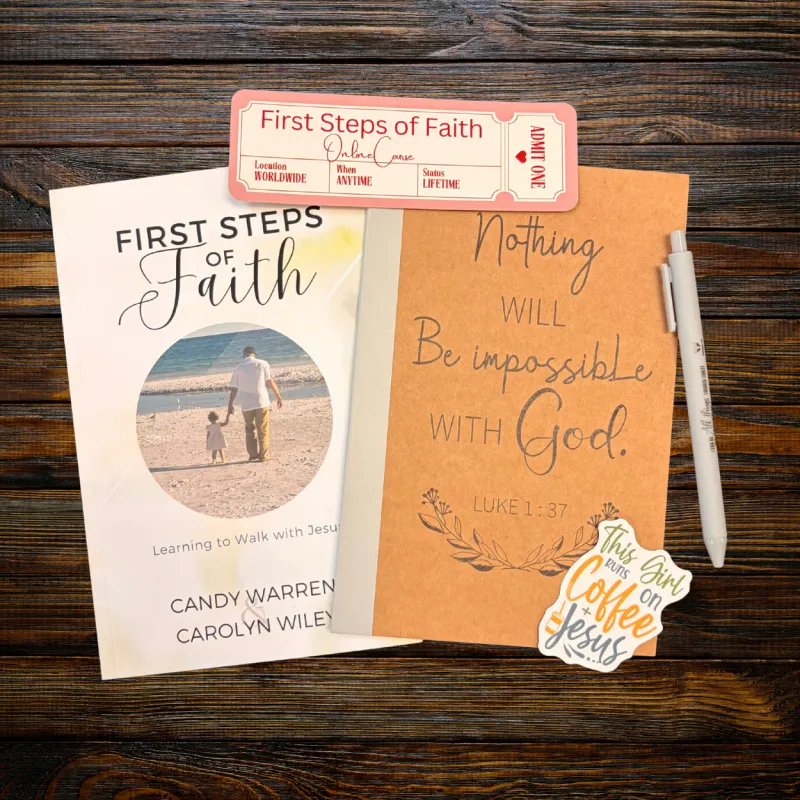 First Steps of Faith
Online Course
Location
WORLDWIDE
When
ANYTIME
Status
LIFETIME
ADMIT ONE
FIRST STEPS
OF
Faith
Learning to Walk with Jesus
CANDY WARREN
&
CAROLYN WILEY
Nothing
WILL
Be impossible
WITH God.
LUKE 1:37
This Girl
RUNS on
Coffee
+
Jesus